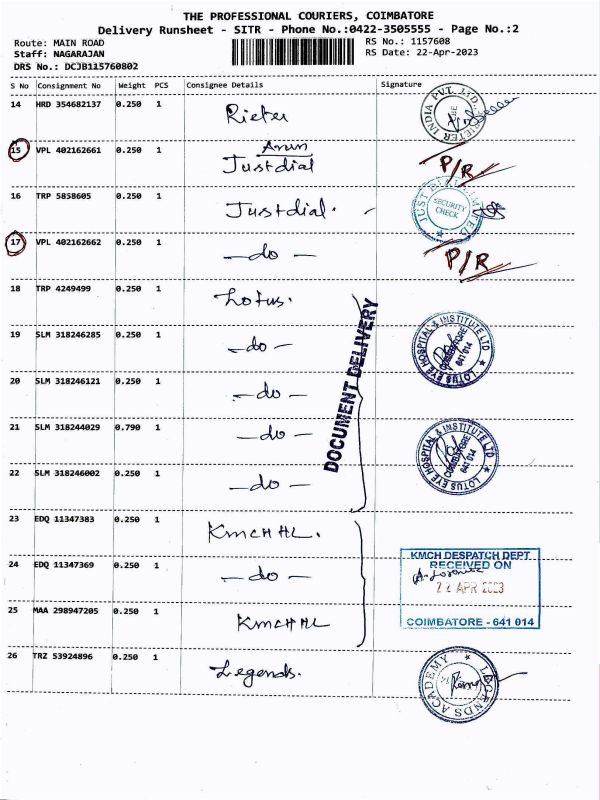 THE PROFESSIONAL COURIERS, COIMBATORE
Delivery Runsheet - SITR - Phone No.:0422-3505555 - Page No.:2
Route: MAIN ROAD
RS No.: 1157608
Staff: NAGARAJAN
RS Date: 22-Apr-2023
DRS No.: DCJB115760802
S No Consignment No Weight PCS Consignee Details Signature
14 HRD 354682137 0.250 1 Rieter
RIETER INDIA PVT. LTD.
15 VPL 402162661 0.250 1 Arun Justdial P/R
16 TRP 5858605 0.250 1 Justdial.
JUST DIAL LIMITED
SECURITY CHECK
17 VPL 402162662 0.250 1 -do- P/R
18 TRP 4249499 0.250 1 Lotus.
DOCUMENT DELIVERY
19 SLM 318246285 0.250 1 -do-
LOTUS EYE HOSPITAL & INSTITUTE LTD
COIMBATORE 641 014
20 SLM 318246121 0.250 1 -do-
21 SLM 318244029 0.790 1 -do-
LOTUS EYE HOSPITAL & INSTITUTE LTD
COIMBATORE 641 014
22 SLM 318246002 0.250 1 -do-
23 EDQ 11347383 0.250 1 KMCHHL.
24 EDQ 11347369 0.250 1 -do-
KMCH DESPATCH DEPT
RECEIVED ON
22 APR 2023
COIMBATORE - 641 014
25 MAA 298947205 0.250 1 KMCHHL
26 TRZ 53924896 0.250 1 Legends.
LEGENDS ACADEMY